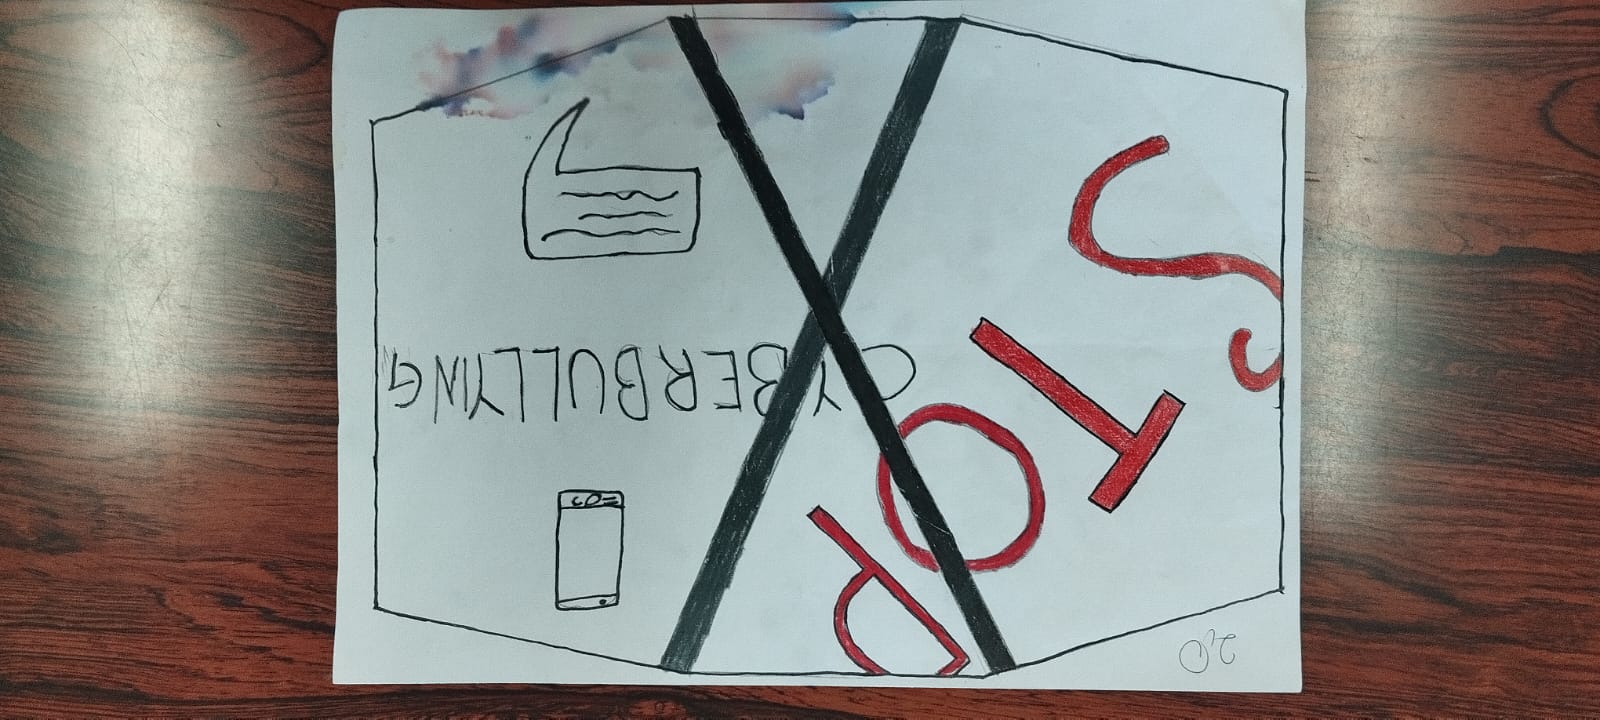 STOP
CYBERBULLYING